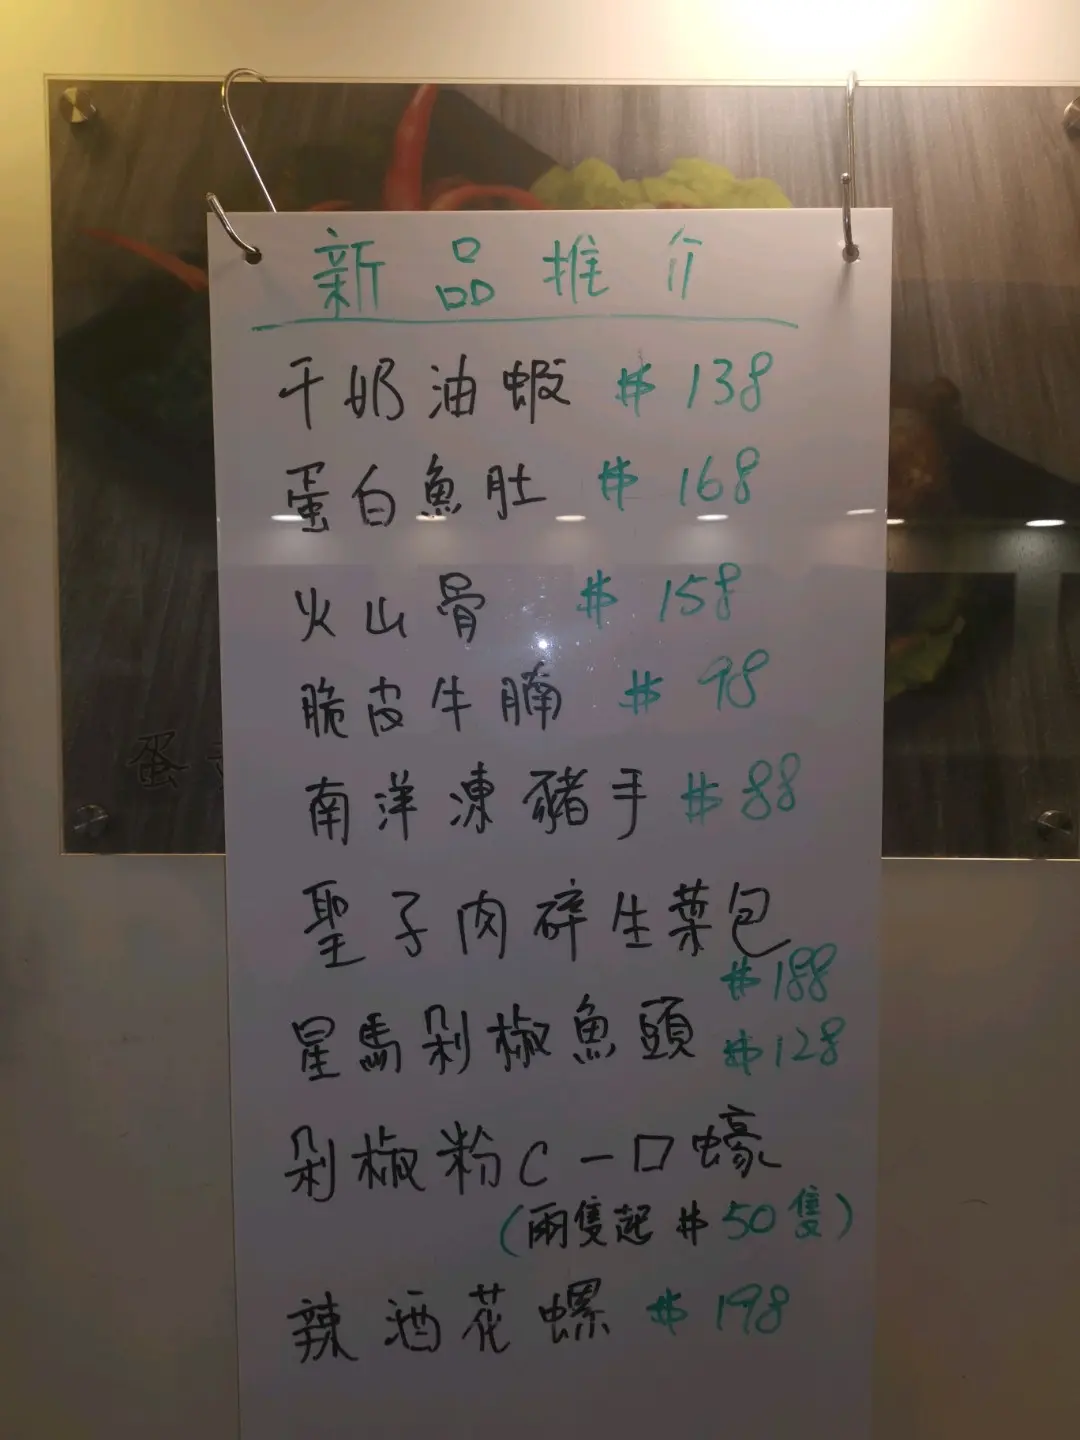 新品推介
干奶油蝦 $138
蛋白魚肚 $168
火山骨 $158
脆皮牛腩 $98
南洋凍豬手 $88
聖子肉碎生菜包
$188
星馬剁椒魚頭 $128
剁椒粉C一口蠔
(兩隻起 $50隻)
辣酒花螺 $198
蛋